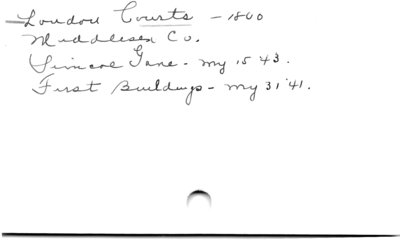 London Courts - 1800
Middlesex Co.
Simcoe Gave - my 15 43.
First Buildings - my 31 '41.